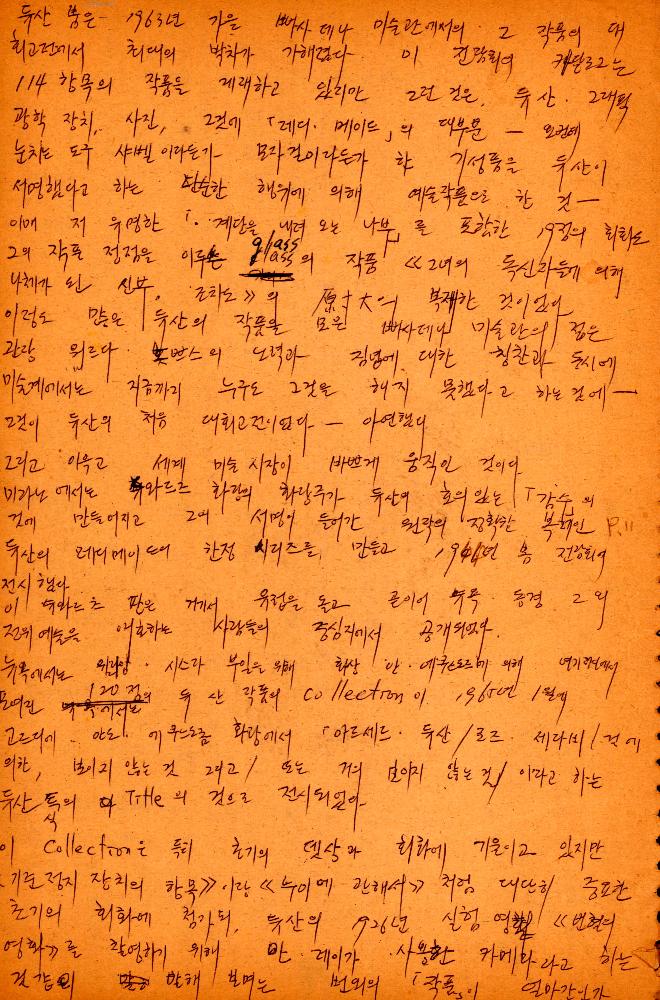 뒤샹 붐은 - 1963년 가을 빠사데나 미술관에서의 그 작품의 대
회고전에서 최대의 박차가 가해졌다. 이 전람회의 카탈로그는
114 항목의 작품을 게재하고 있지만 그런 것은, 뒤샹·그래픽
광학 장치, 사진, 그것에 「레디·메이드」의 대부분 —
눈치는 도구 샤벨이라든가 모자걸이라든가 한 기성품을 뒤샹이
서명했다고 하는 단순한 행위에 의해 예술작품으로 한 것 —
이며 저 유명한 「계단을 내려 오는 나부」를 포함한 19점의 회화와
그의 작품 정점을 이루는 glass의 작품 《그녀의 독신자들에 의해
나체가 된 신부, 조차도》의 原寸大의 복제한 것이었다
이정도 많은 뒤샹의 작품을 모은 빠사데나 미술관의 젊은
관장 월터 홉스의 노력과 집념에 대한 칭찬과 동시에
미술계에서는 지금까지 누구도 그것을 하지 못했다고 하는 것에 —
그것이 뒤샹의 처음 대회고전이었다 — 아연했다
그리고 이윽고 세계 미술 시장이 바쁘게 움직인 것이다
미라노에서는 슈와르츠 화랑의 화랑주가 뒤샹의 호의있는 「감수」의
것에 만들어지고 그의 서명이 들어간 원작의 정확한 복제인 P.11
뒤샹의 레디메이드의 한정 시리즈를 만들고 1964년 봄 전람회에
전시했다
이 슈와르츠 판은 거기서 유럽을 돌고 곧이어 뉴욕·동경 그외
전위예술을 애호하는 사람들의 중심지에서 공개되었다.
뉴욕에서는 위리암·시스라 부인을 위해 화상 안·에쿠스토롬에 의해
모여진 120점의 뒤샹 작품의 collection이 1965년 1월에
고르디에·안드·에쿠스토롬 화랑에서 「마르세르·뒤샹/로즈·세라비/것에
의한, 보이지 않는 것 그리고/또는 거의 보이지 않는 것/이라고 하는
뒤샹식의 Title의 것으로 전시되었다
이 Collection은 특히 초기의 뎃상과 회화에 기울이고 있지만
《기준정지 장치의 항목》이랑 《누이에 관해서》처럼 대단히 중요한
초기의 회화에 첨가되, 뒤샹의 1926년 실험 영화 《빈혈의
영화》를 촬영하기 위해 만·레이가 사용한 카메라라고 하는
것 같은 말해 보며는 번외의 「작품」이 얼마간인가